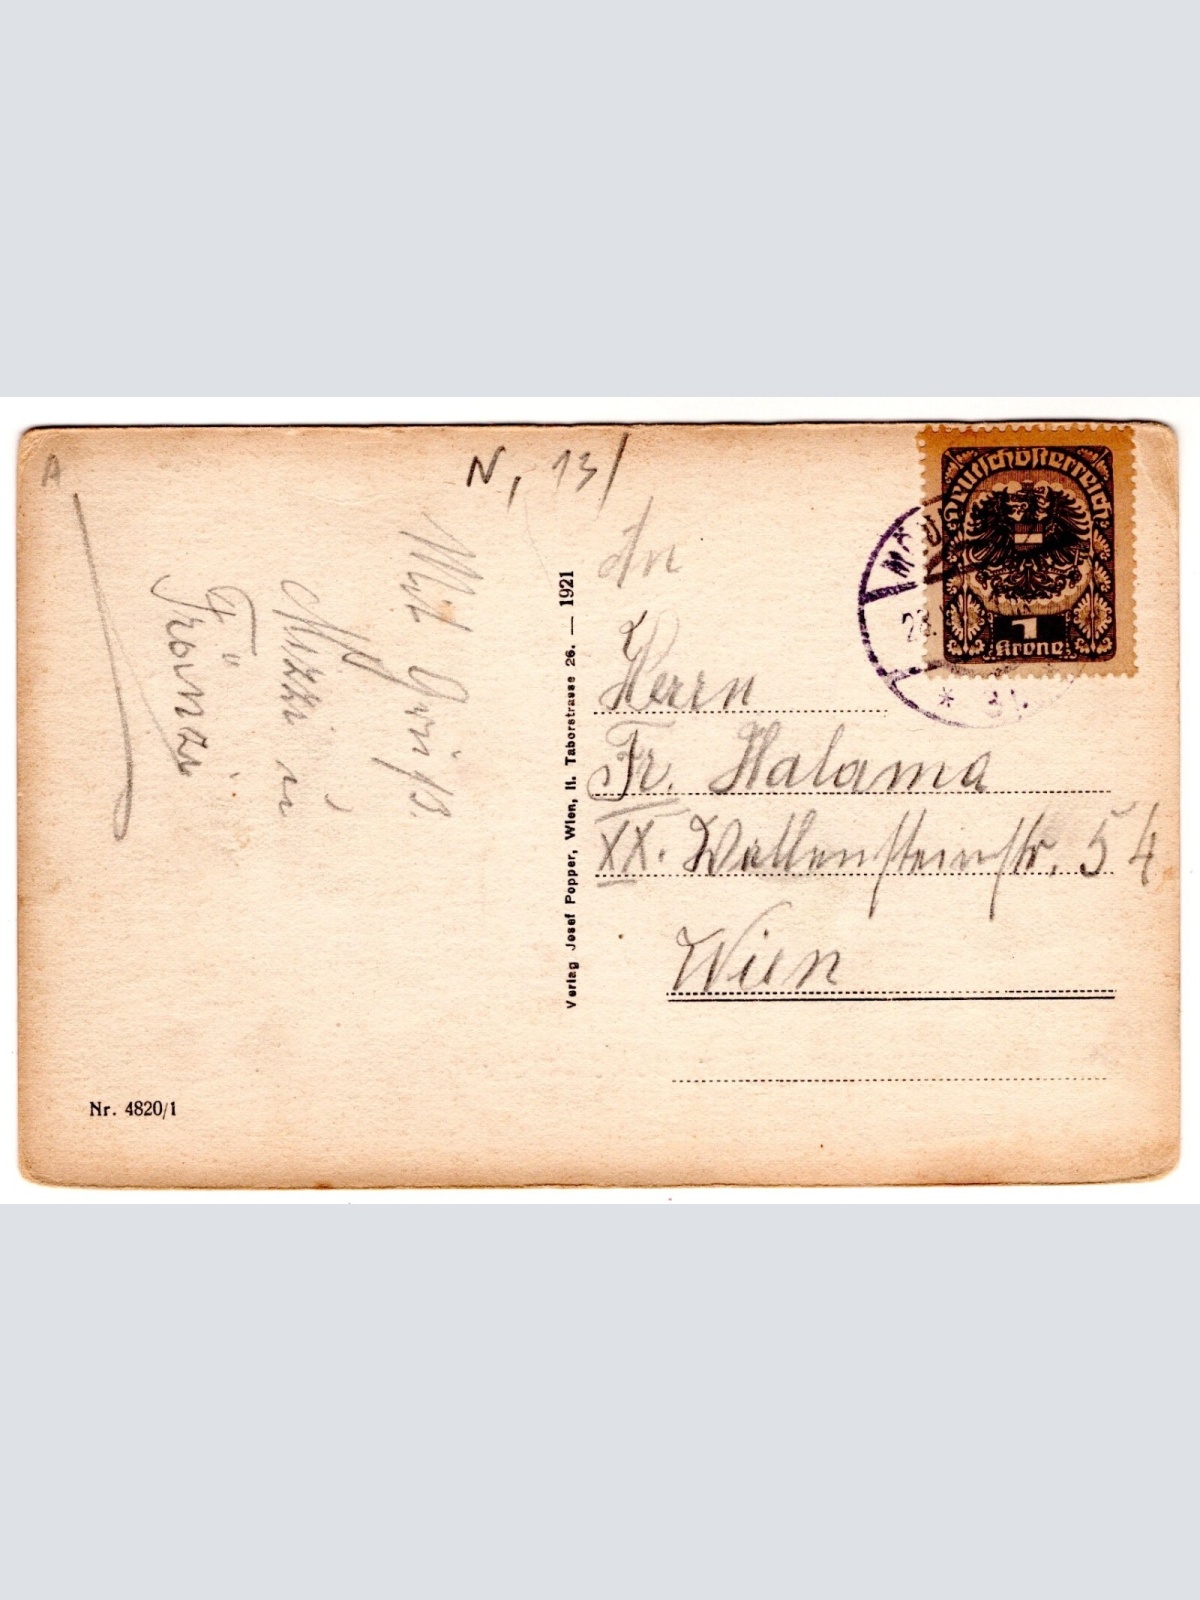 A
N, 13/
Mit Gruß
Mizzi u
Franzi
Verlag Josef Popper, Wien, II. Taborstrasse 26. — 1921
Nr. 4820/1
Deutschösterreich
1
Krone
An
Herrn
Fr. Halama
XX. Wallensteinstr. 54
Wien